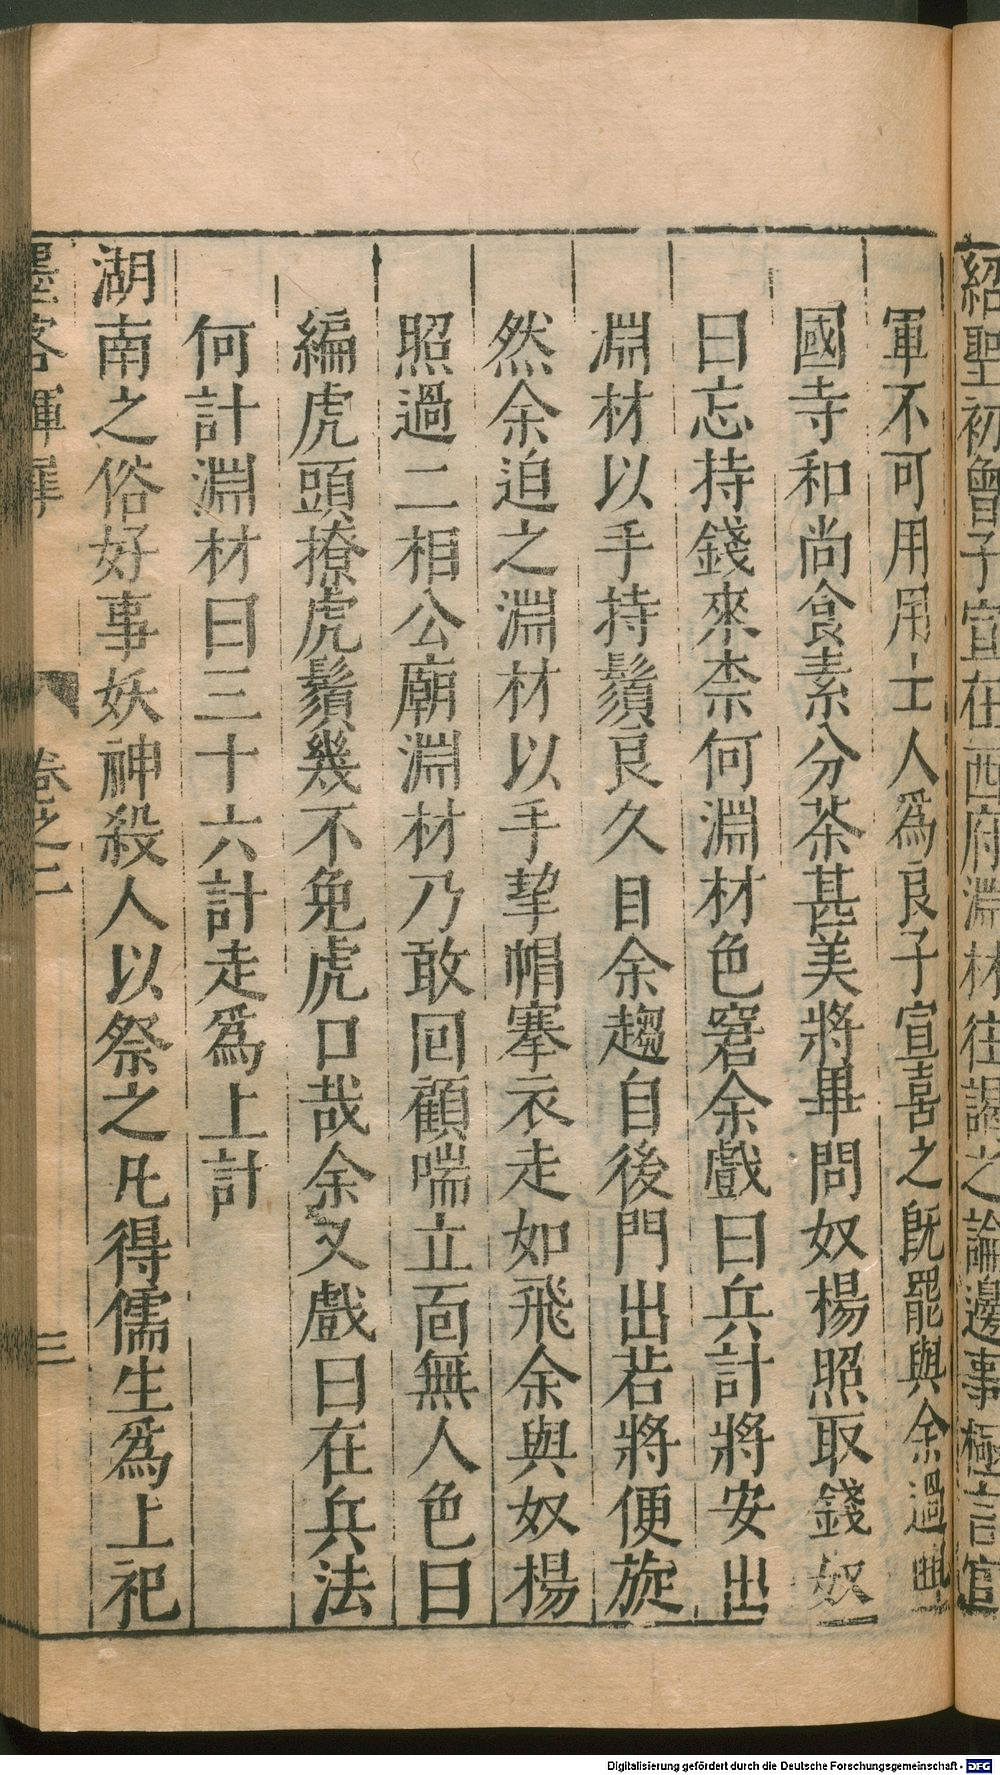 紹聖初曾子宣在西府淵材往謁之論邊事極言官
軍不可用用士人爲良子宣喜之旣罷與余過興
國寺和尚食素分茶甚美將畢問奴楊照取錢奴
曰忘持錢來柰何淵材色窘余戲曰兵計將安出
淵材以手持鬚良久目余趨自後門出若將便旋
然余迫之淵材以手挈帽搴衣走如飛余與奴楊
照過二相公廟淵材乃敢回顧喘立面無人色曰
編虎頭撩虎鬚幾不免虎口哉余又戲曰在兵法
何計淵材曰三十六計走爲上計
湖南之俗好事妖神殺人以祭之凡得儒生爲上祀
墨客揮犀 卷之二 三
Digitalisierung gefördert durch die Deutsche Forschungsgemeinschaft - DFG